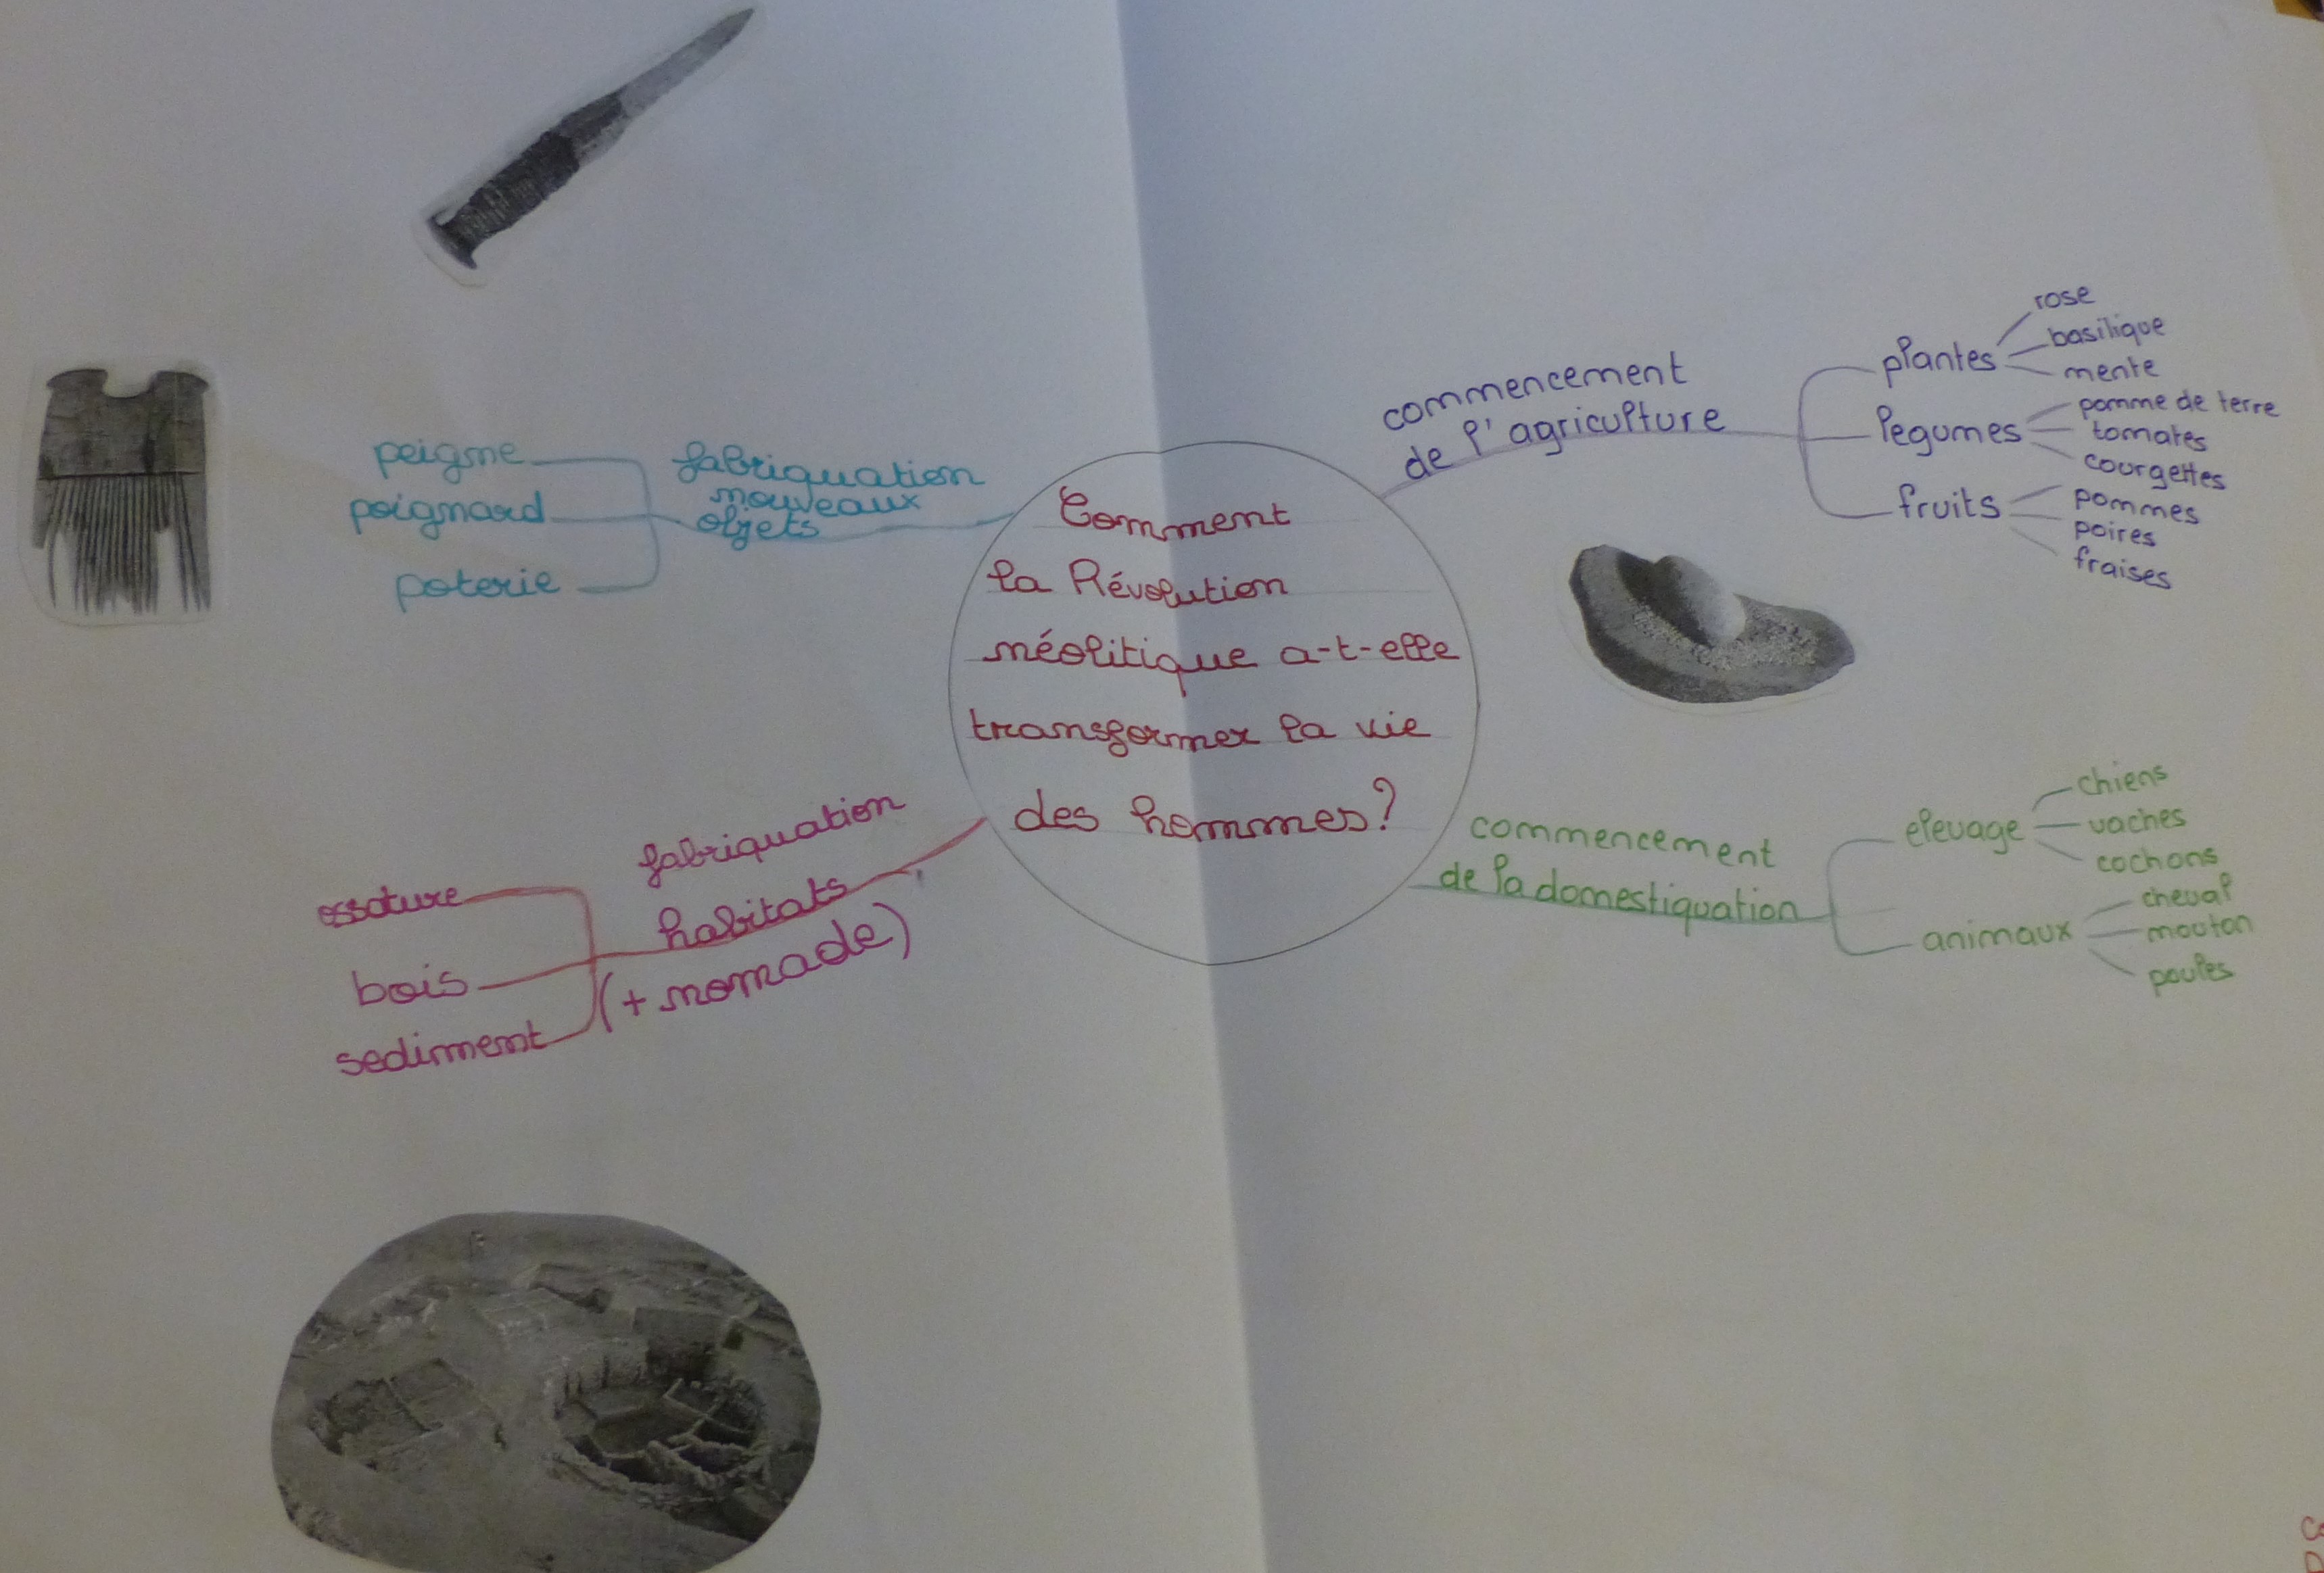 Comment
la Révolution
néolitique a-t-elle
transformer la vie
des hommes?
commencement
de l'agriculture
plantes
rose
basilique
mente
legumes
pomme de terre
tomates
courgettes
fruits
pommes
poires
fraises
commencement
de la domestiquation
elevage
chiens
vaches
cochons
animaux
cheval
mouton
poules
fabriquation
nouveaux
objets
peigne
poignard
poterie
fabriquation
habitats
(+ nomade)
ossature
bois
sediment